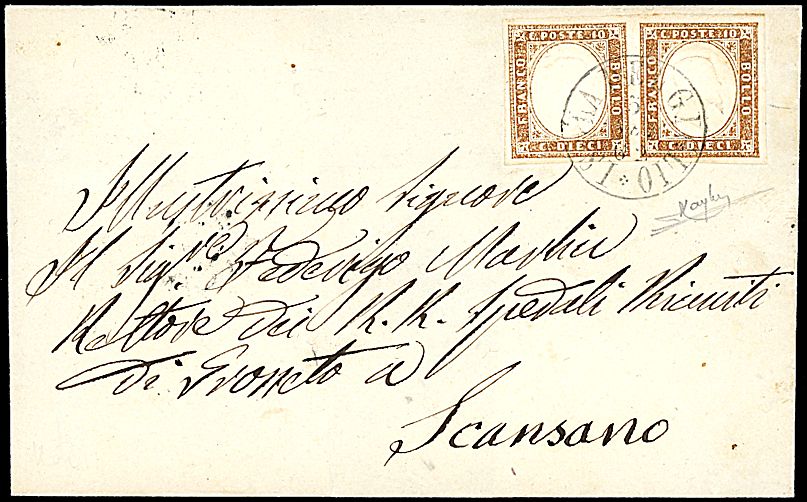 C. POSTE 10 C. POSTE 10
FRANCO BOLLO FRANCO BOLLO
C. DIECI C. DIECI
Illustrissimo Signore
Il Sig.re Federigo
Rettore dei R. R. Spedali Riuniti
di Grosseto a
Scansano